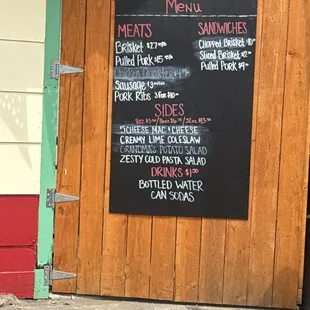 Menu
MEATS
Brisket $27
Pulled Pork $15
Chicken Quarter
Sausage $3
Pork Ribs 3 For $10
SANDWICHES
Chopped Brisket
Sliced Brisket
Pulled Pork $9
SIDES
5CHEESE MAC & CHEESE
CREAMY LIME COLESLAW
GRANDMA'S POTATO SALAD
ZESTY COLD PASTA SALAD
DRINKS $1.50
BOTTLED WATER
CAN SODAS